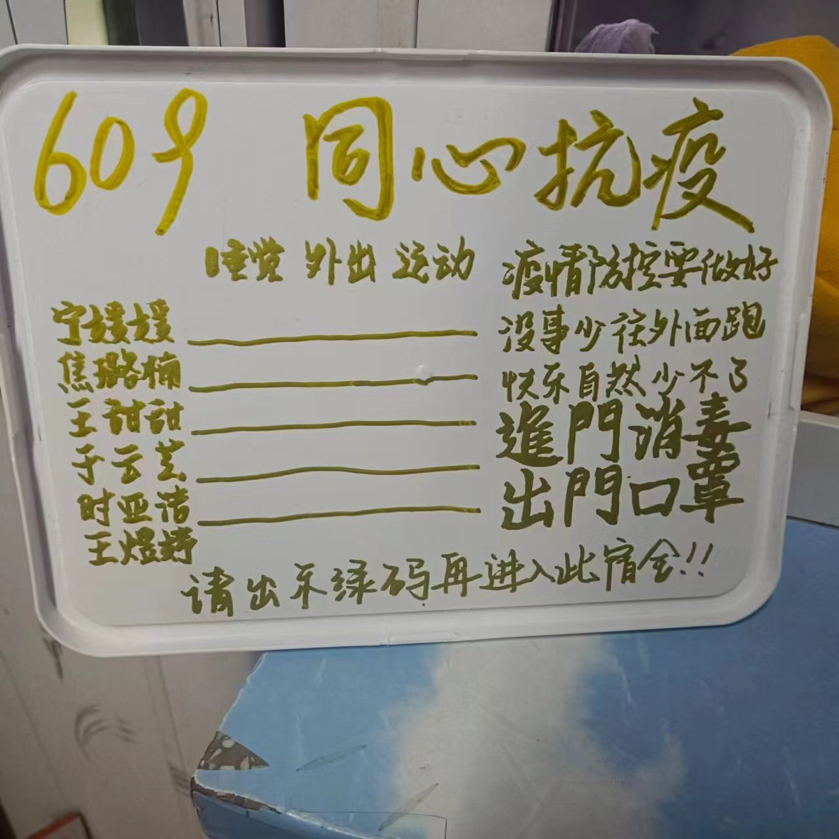 609 同心抗疫
睡觉 外出 运动
宁媛媛
焦璐楠
王甜甜
于云芝
时亚洁
王煜婷
疫情防控要做好
没事少往外面跑
快乐自然少不了
進門消毒
出門口罩
请出示绿码再进入此宿舍!!